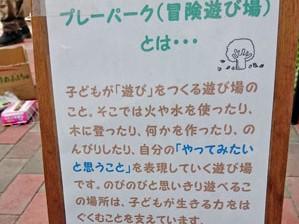 プレーパーク(冒険遊び場)
とは・・・
子どもが「遊び」をつくる遊び場の
こと。そこでは火や水を使ったり、
木に登ったり、何かを作ったり、の
んびりしたり、自分の「やってみたい
と思うこと」を表現していく遊び場
です。のびのびと思いきり遊べるこ
の場所は、子どもが生きる力をは
ぐくむことを支えています。